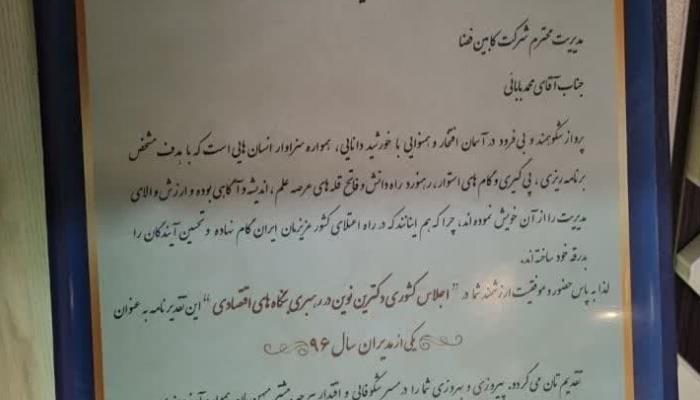 مدیریت محترم شرکت کابین فضا
جناب آقای محمد بابائی
پرواز شکوهمند و بی فرود در آسمان افتخار و همنوایی با خورشید دانایی، همواره سزاوار انسان هایی است که با هدف مشخص
برنامه ریزی، پی گیری و گام های استوار، رهنورد راه دانش و فاتح قله های عرصه علم، اندیشه و آگاهی بوده و ارزش والای
مدیریت را از آن خویش نموده اند، چرا که هم اینانند که در راه اعتلای کشور عزیزمان ایران گام نهاده و تحسین آیندگان را
بدرقه خود ساخته اند.
لذا به پاس حضور و موفقیت ارزشمند شما در "اجلاس کشوری دکترین نوین در رهبری بنگاه های اقتصادی" این تقدیرنامه به عنوان
یکی از مدیران سال ۹۶
تقدیم تان می گردد. پیروزی و بهروزی شما را در مسیر شکوفائی و اقتدار